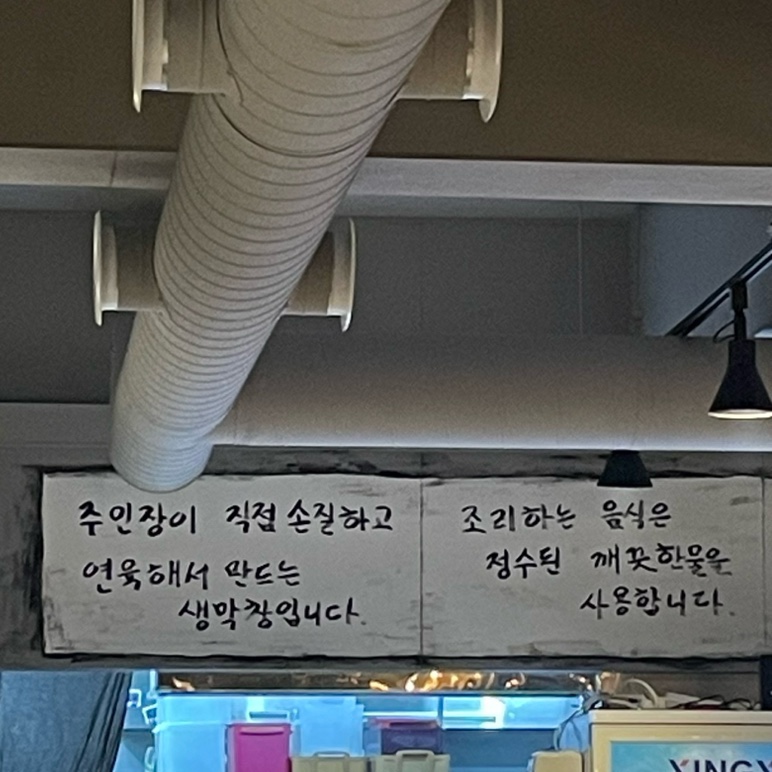 주인장이 직접 손질하고
연육해서 만드는
생막창입니다.
조리하는 음식은
정수된 깨끗한물을
사용합니다.